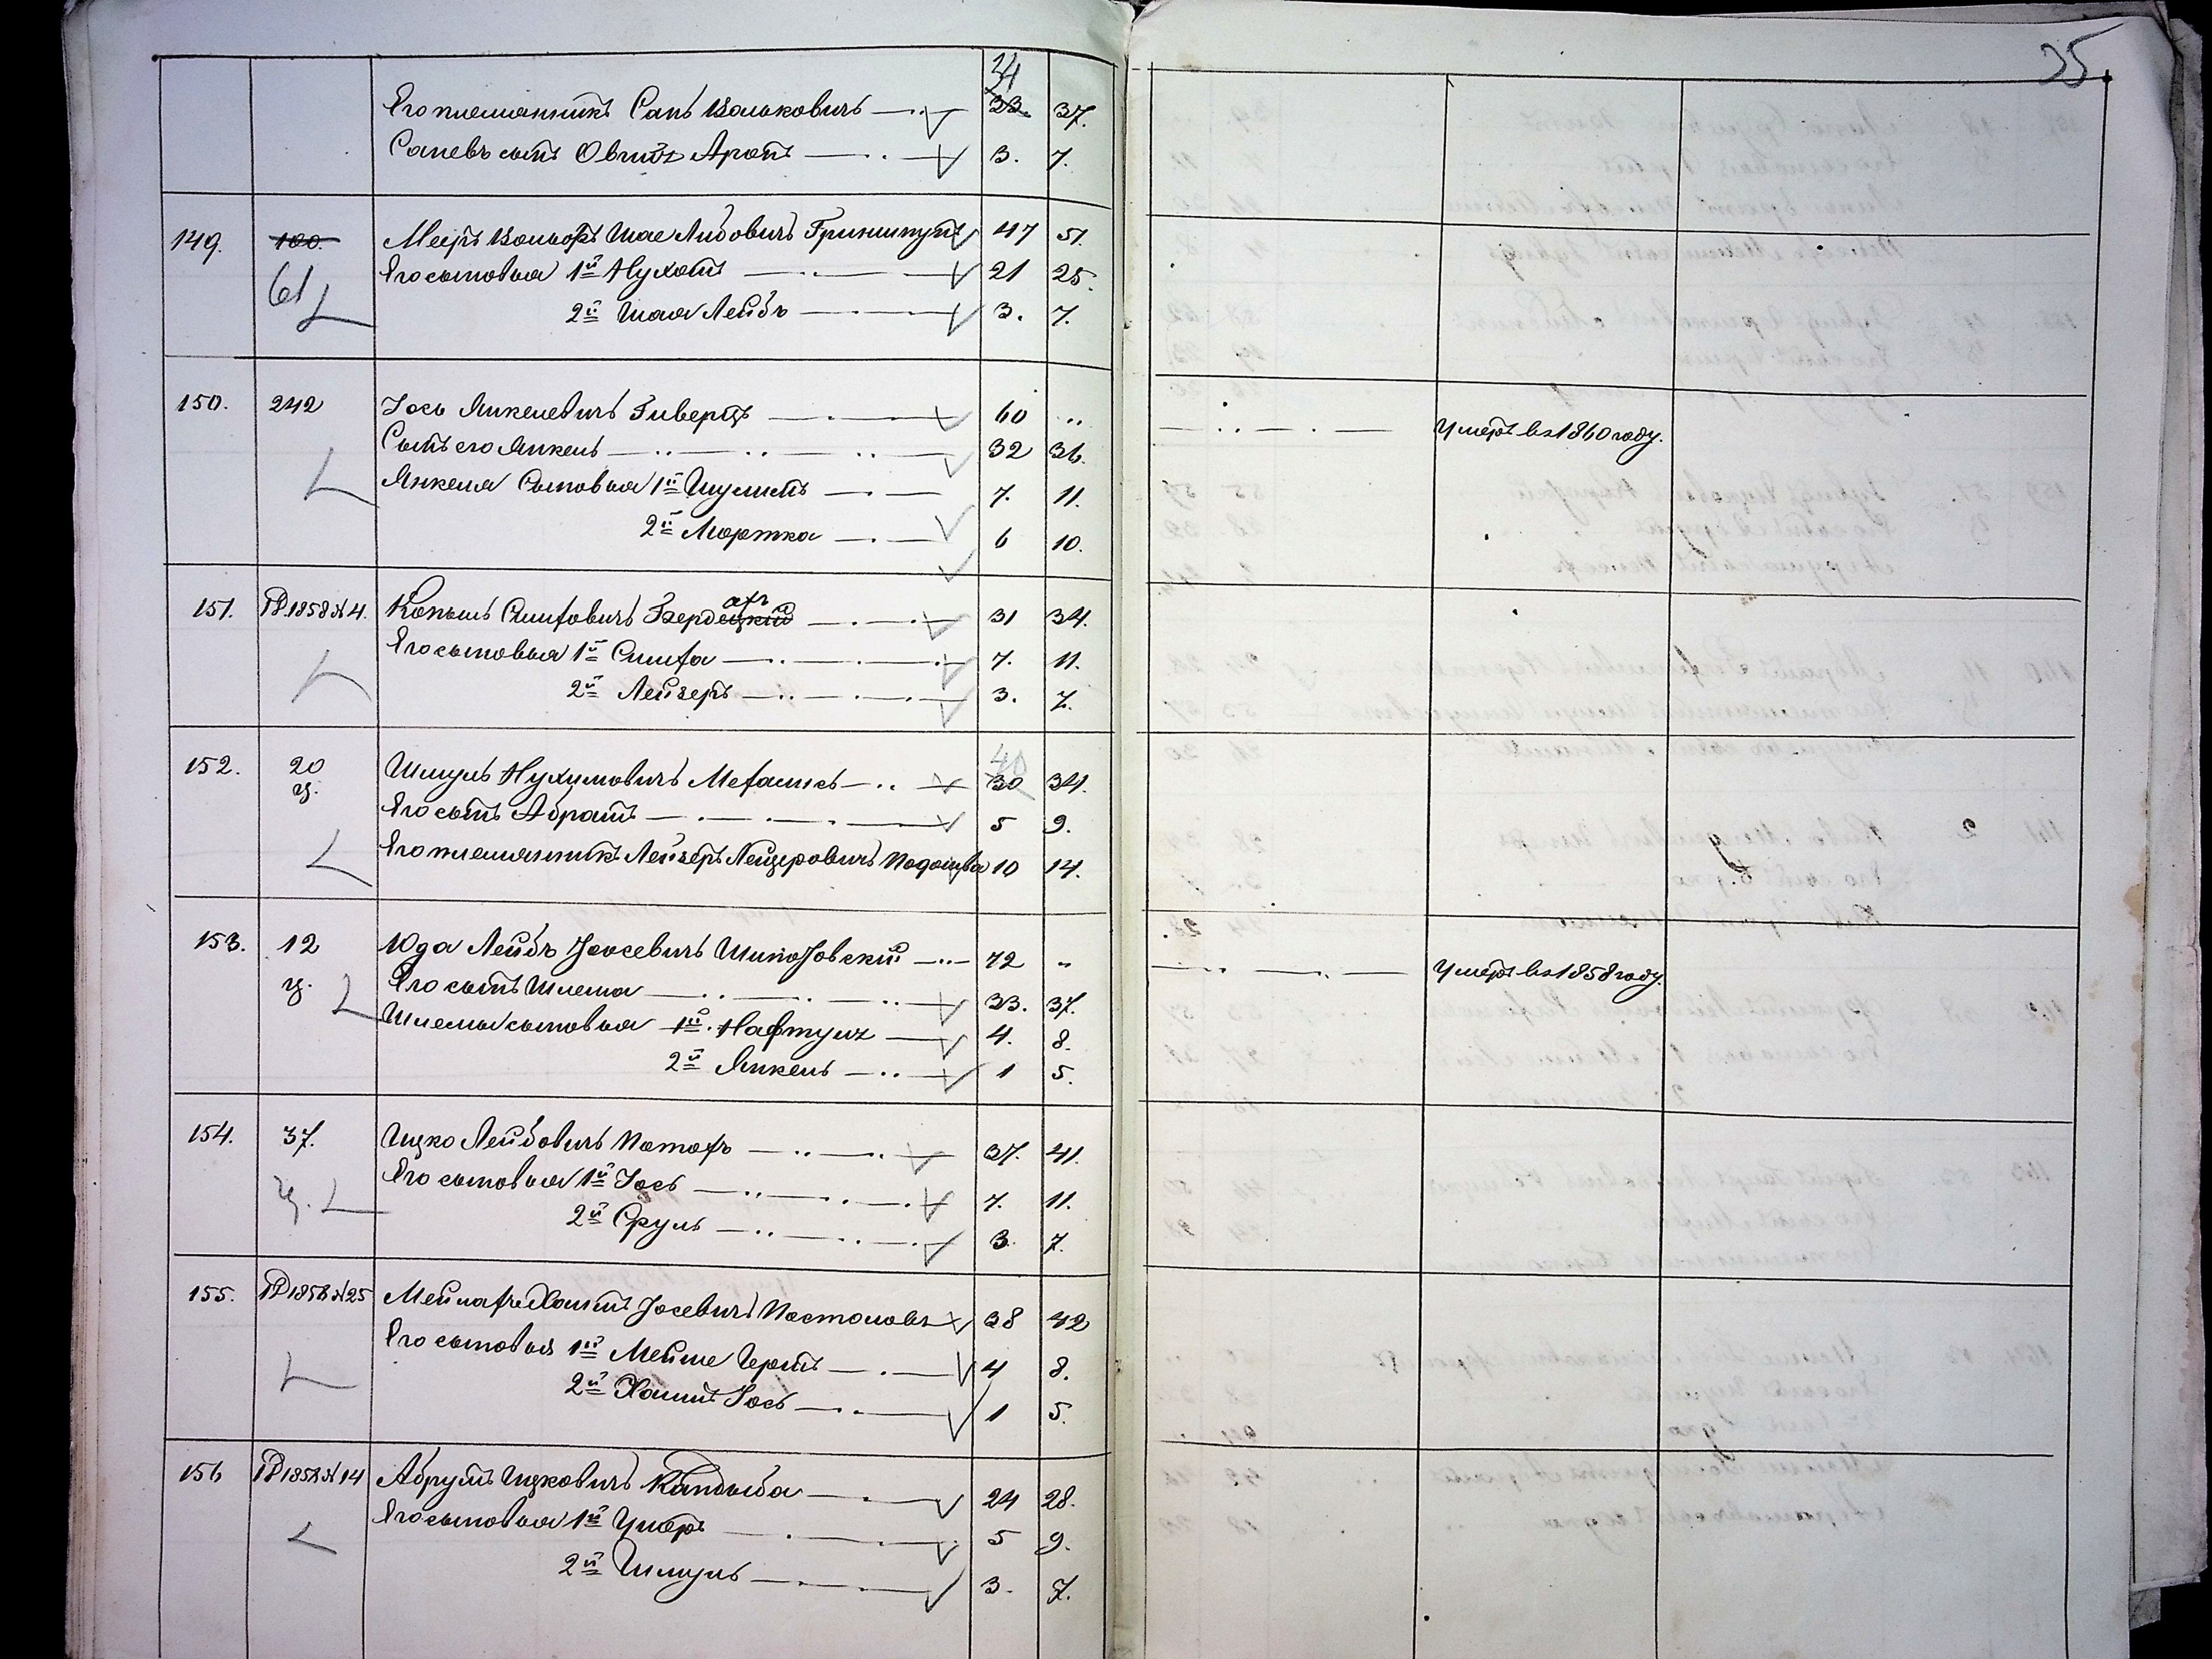 35
24
Его племянникъ Сапъ Вольковичъ 33. 37.
Сапевъ сынъ Овшіа Аронъ 3. 7.
149. 100. Меэръ Вольфъ Шае Либовичъ Гриншпунъ 47 51.
61 Его сыновья 1й Нухомъ 21 25.
2й Шая Лейбъ 3. 7.
150. 242 Іось Янкелевичъ Гиверцъ 60 „ Умеръ въ 1860 году.
Сынъ его Янкель 32 36.
Янкеля Сыновья 1й Шулимъ 7. 11.
2й Мортка 6 10.
151. РР 1858 № 4. Копыль Симховичъ Бердецкій ахъ 31 34.
Его сыновья 1й Симха 7. 11.
2й Лейзеръ 3. 7.
152. 20 Шмуль Нухимовичъ 30 34.
ц. Его сынъ Абрамъ 5 9.
Его племянникъ Лейзеръ Лейзеровичъ Подошва 10 14.
153. 12 Юда Лейбъ Іосевичъ 72 „ Умеръ въ 1858 году.
ц. Его сынъ Шлема 33. 37.
Шлемы сыновья 1й Нафтула 4. 8.
2й Янкель 1 5.
154. 37. Ицко Лейбовичъ 37. 41.
ц. Его сыновья 1й Іось 7. 11.
2й Сруль 3. 7.
155. РР 1858 № 25 Хаимъ Іосевичъ Постоловъ 38 42
Его сыновья 1й Мейше Геришъ 4 8.
2й Хаимъ Іось 1 5.
156 РР 1858 № 14 Абрумъ Ицковичъ Кандыба 24 28.
Его сыновья 1й Ушеръ 5 9.
2й Шмуль 3. 7.